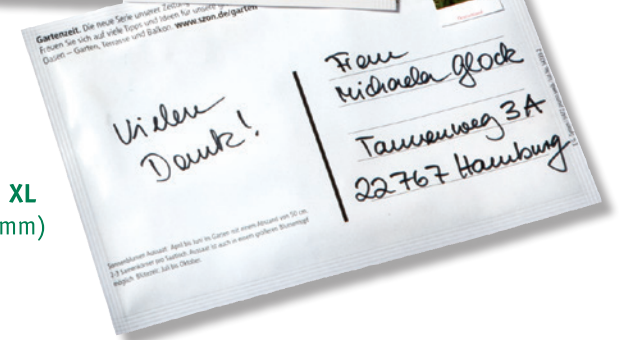 Gartenzeit. Die neue Serie unserer Zeitung
Freuen Sie sich auf viele Tipps und Ideen für unsere
Oasen – Garten, Terrasse und Balkon. www.szon.de/garten
Frau
Michaela Glock
Vielen
Dank!
Tannenweg 3A
22767 Hamburg
XL
mm)
Sonnenblumen Aussaat: April bis Juni im Garten mit einem Abstand von 50 cm,
2-3 Samenkörner pro Saatloch. Aussaat ist auch in einem größeren Blumentopf
möglich. Blütezeit: Juli bis Oktober.